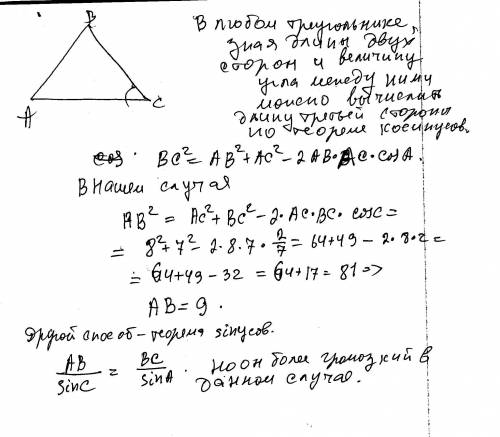 B
A
C
В любом треугольнике,
зная длины двух
сторон и величину
угла между ними
можно вычислить
длину третьей стороны
по теореме косинусов.
BC² = AB² + AC² - 2AB·AC·cosA.
В нашем случае
AB² = AC² + BC² - 2·AC·BC·cosC =
= 8² + 7² - 2·8·7·2/7 = 64 + 49 - 2·8·2 =
= 64 + 49 - 32 = 64 + 17 = 81 =>
AB = 9.
Другой способ - теорема sinусов.
AB/sinC = BC/sinA. Но он более громозкий в
данном случае.